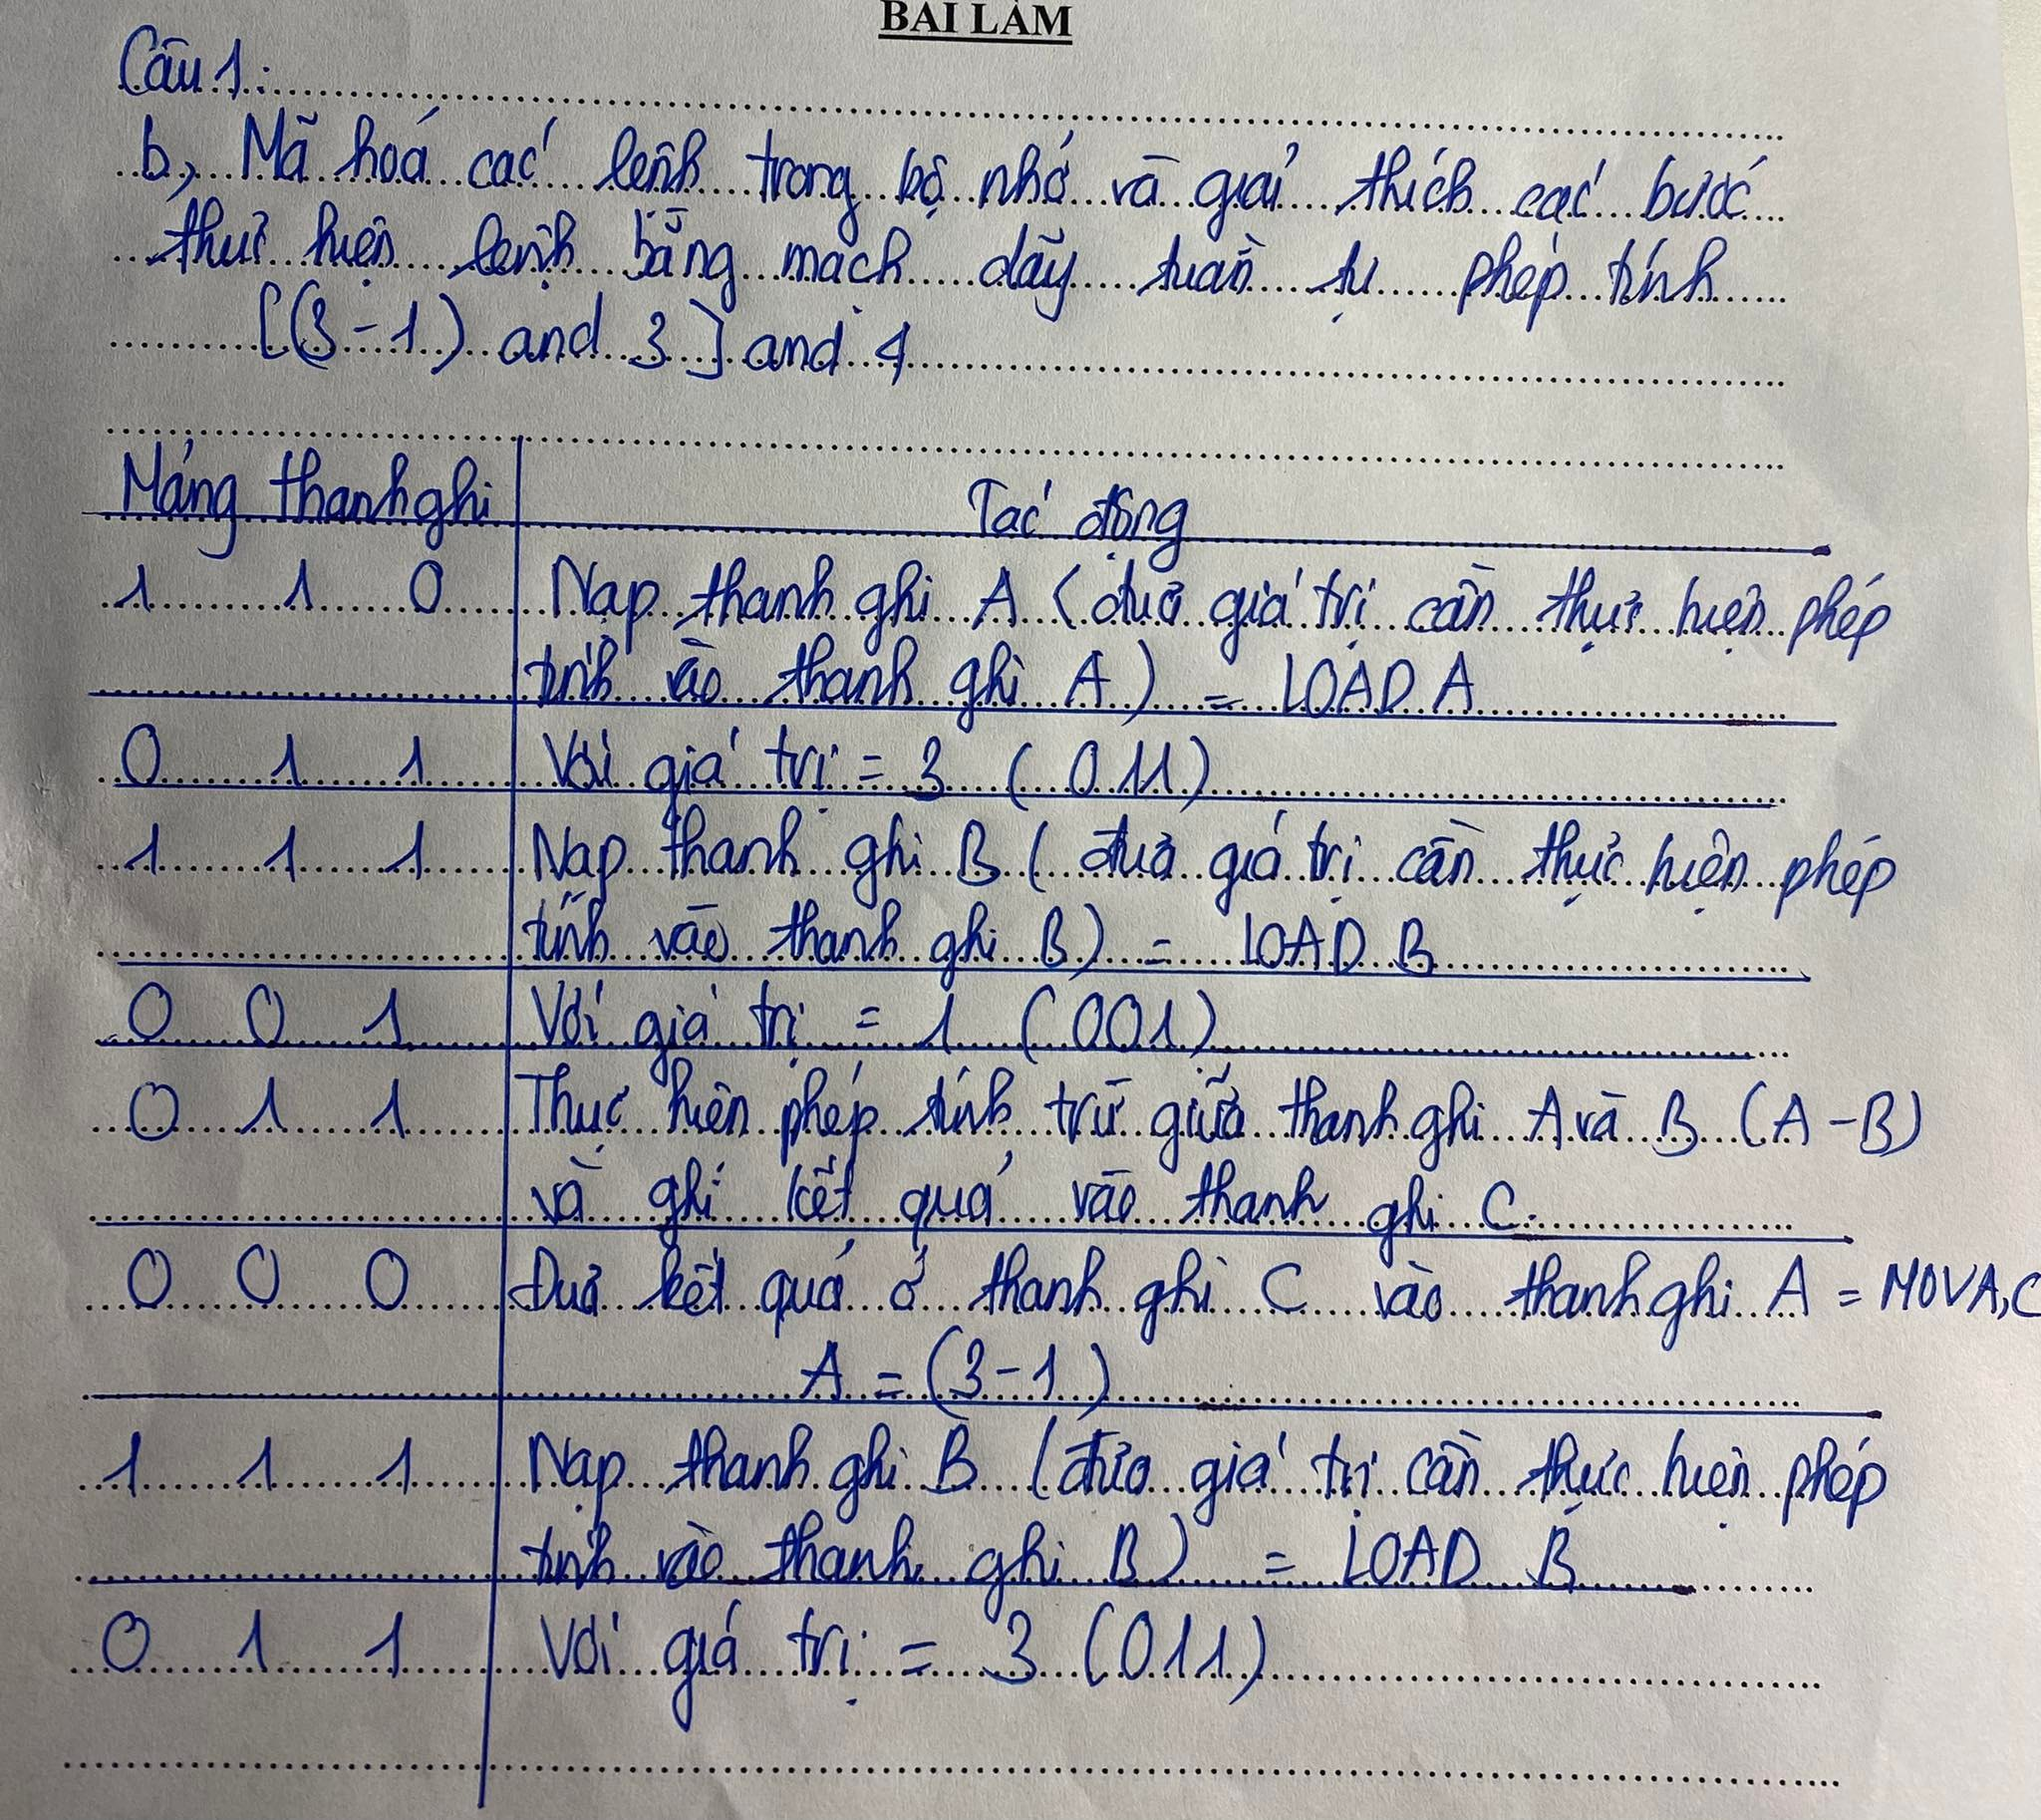 BÀI LÀM
Câu 1:
b, Mã hoá các lệnh trong bộ nhớ và giải thích các bước
thực hiện lệnh bằng mạch dãy tuần tự phép tính
[(3-1) and 3] and 4
Mảng thanh ghi Tác động
1 1 0 Nạp thanh ghi A (đưa giá trị cần thực hiện phép
tính vào thanh ghi A) = LOAD A
0 1 1 Với giá trị = 3 (011)
1 1 1 Nạp thanh ghi B (đưa giá trị cần thực hiện phép
tính vào thanh ghi B) = LOAD B
0 0 1 Với giá trị = 1 (001)
0 1 1 Thực hiện phép tính trừ giữa thanh ghi A và B (A-B)
và ghi kết quả vào thanh ghi C.
0 0 0 Đưa kết quả ở thanh ghi C vào thanh ghi A = MOVA,C
A = (3-1)
1 1 1 Nạp thanh ghi B (đưa giá trị cần thực hiện phép
tính vào thanh ghi B) = LOAD B
0 1 1 Với giá trị = 3 (011)